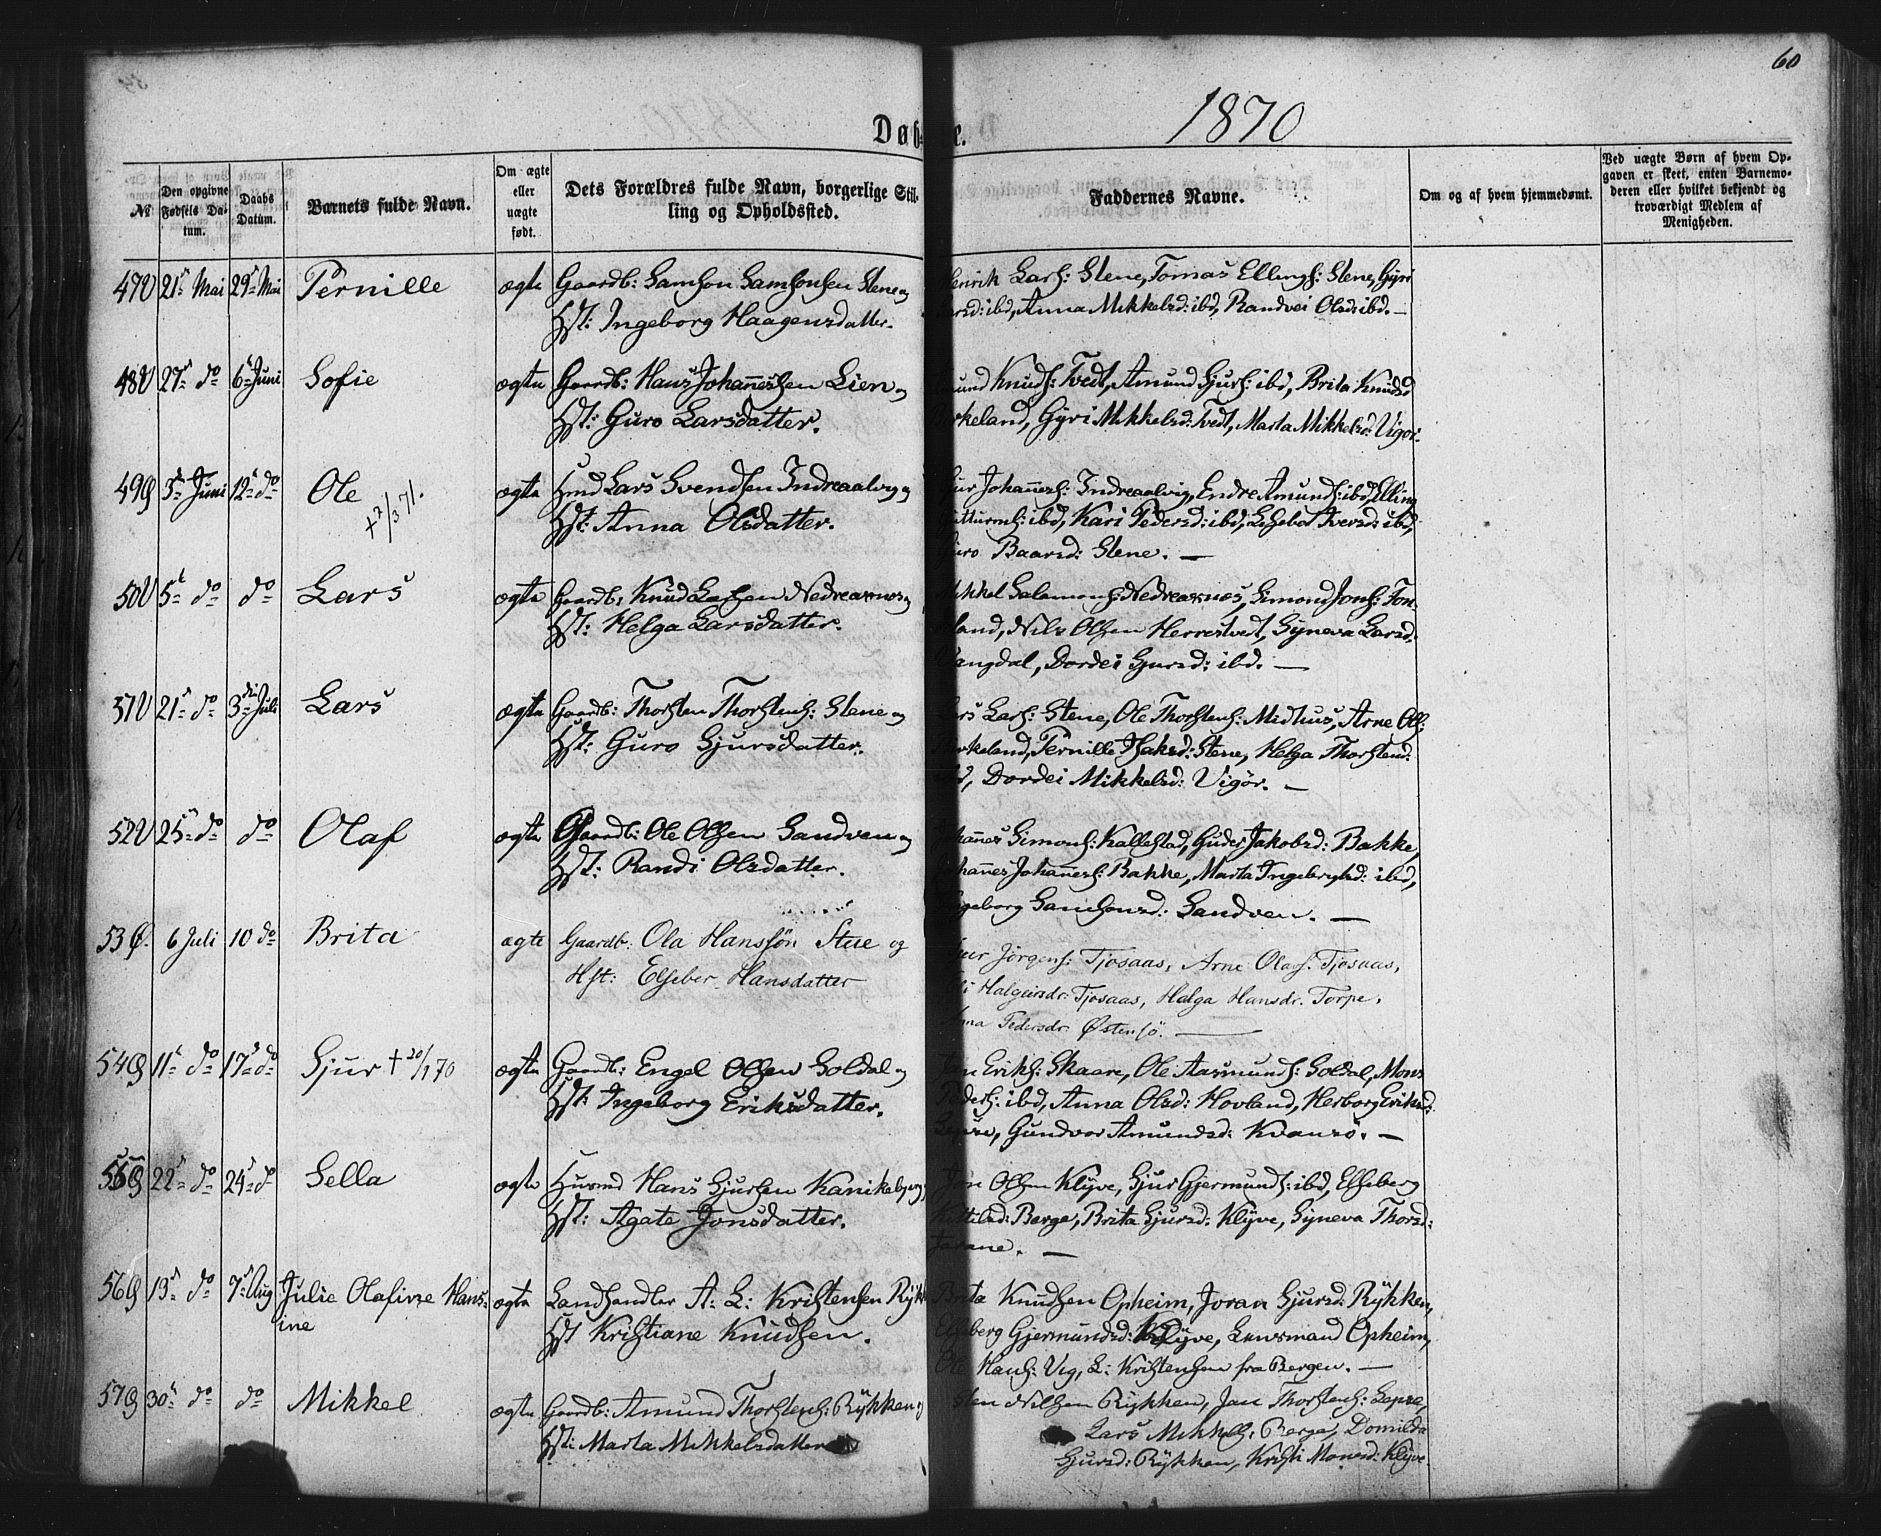 60
1870
Døb e.
№
Den opgivne Fødsels Datum.
Daabs Datum.
Barnets fulde Navn.
Om ægte eller uægte født.
Dets Forældres fulde Navn, borgerlige Stilling og Opholdssted.
Faddernes Navne.
Om og af hvem hjemmedømt.
Ved uægte Børn af hvem Opgaven er skeet, enten Barnemoderen eller hvilket bekjendt og troværdigt Medlem af Menigheden.
47 21 Mai 29 Mai Pernille ægte Gaardb: Samson Samsonsen Stene og
Hst: Ingeborg Haagensdatter.
Lars: Stene, Tomas Ellings: Stene, Gyri
ibd, Anna Mikkelsd: ibd, Randvei Olsd: ibd. —
48 27 do 6 Juni Sofie ægte Gaardb: Hans Johannessen Lien og
Hst: Guro Larsdatter.
Knuds: Tvedt, Amund Sjurs: ibd, Brita Knudsd
Gyri Mikkelsd: Tvedt, Marta Mikkelsd: Vigør.
49 3 Juni 12 do Ole ægte Hmd Lars Svendsen Indreaalvig og
+ 2/3 71.
Hst: Anna Olsdatter.
Johannes: Indreaalvig, Endre Amunds: ibd, Elling
ibd, Kari Pedersd: ibd, Iversd: ibd,
Baarsd: Stene. —
50 5 do do Lars ægte Gaardb: Knud Larsen Nedreaxnes og
Hst: Helga Larsdatter.
Salamons: Nedreaxnes, Simond Jons: Ton-
Nils Olsen Herrestvedt, Syneva Larsd:
Dordei Sjursd: ibd. —
51 21 do 3 Juli Lars ægte Gaardb: Thorsten Thorstens: Stene og
Hst: Guro Sjursdatter.
Lars: Stene, Ole Thorstens: Midhus, Arne Ols:
Pernille Stene, Helga Thorstensd:
Dordei Mikkelsd: Vigør. —
52 25 do do Olaf ægte Gaardb: Ole Olsen Sandven og
Hst: Randi Olsdatter.
Simons: Kallestad, Jakobsd: Bakke,
Johannes: Bakke, Marta Ingebrigtsd: ibd,
Samsonsd: Sandven. —
53 6 Juli 10 do Brita ægte Gaardb: Ola Hanssøn Stue og
Hst: Elseber Hansdatter
Jørgens: Tjosaas, Arne Olas: Tjosaas,
Halgeirsdr: Tjosaas, Helga Hansdr. Torpe,
Pedersdr Østensø. —
54 11 do 17 do Sjur + 20/7 70 ægte Gaardb: Engel Olsen Soldal og
Hst: Ingeborg Eriksdatter.
Eriks: Skaare, Ole Aasmunds: Soldal, Mons
ibd, Anna Olsd: Hovland, Herborg Eriksd:
Gundvor Amundsd: Kvansø. —
55 22 do 24 do Sella ægte Husmd Hans Sjursen
Hst: Agate Jonsdatter.
Olsen Klyve, Sjur Gjermunds: ibd, Elseberg
Berge, Brita Sjursd: Klyve, Syneva Thorsd:
56 19 do 7 Aug Julie Olafine Hansine ægte Landhandler A. L: Kristensen
Hst Kristiane Knudsen.
Brita Knudsen Opheim, Joran Sjursd: Rykken,
Gjermundsd: Klyve, Lensmand Opheim,
Hans: Vig, L: Kristensen fra Bergen. —
57 30 do do Mikkel ægte Gaardb: Amund Thorstens: Rykken og
Hst: Marta Mikkelsdatter
Nilsen Rykken, Jan Thorstens: Lepse,
Lars Mikkels: Berge, Domilda
Sjursd: Rykken, Kristi Monsd: Klyve.